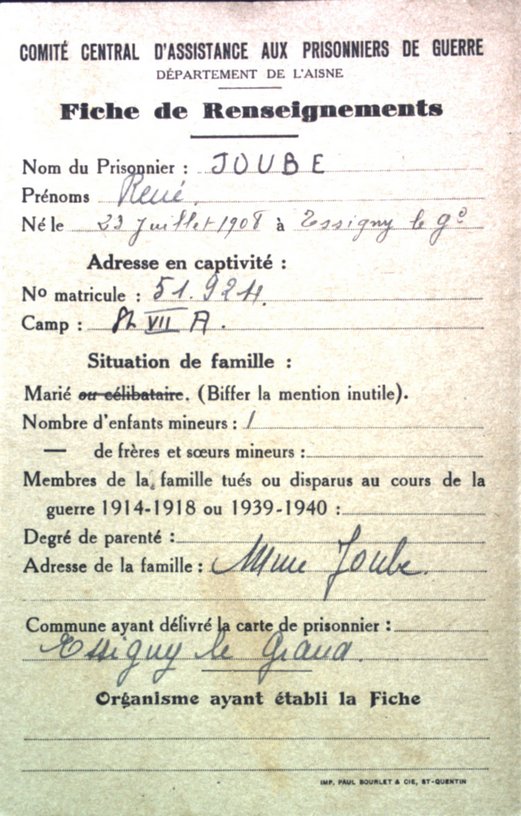 COMITÉ CENTRAL D'ASSISTANCE AUX PRISONNIERS DE GUERRE
DÉPARTEMENT DE L'AISNE
Fiche de Renseignements
Nom du Prisonnier : JOUBE
Prénoms René
Né le 23 Juillet 1908 à Essigny le Gd
Adresse en captivité :
No matricule : 51.924
Camp : VII A.
Situation de famille :
Marié ou célibataire. (Biffer la mention inutile).
Nombre d'enfants mineurs : 1
— de frères et sœurs mineurs :
Membres de la famille tués ou disparus au cours de la
guerre 1914-1918 ou 1939-1940 :
Degré de parenté :
Adresse de la famille : Mme Joube.
Commune ayant délivré la carte de prisonnier :
Essigny le Grand.
Organisme ayant établi la Fiche
IMP. PAUL BOURLET & CIE, ST-QUENTIN